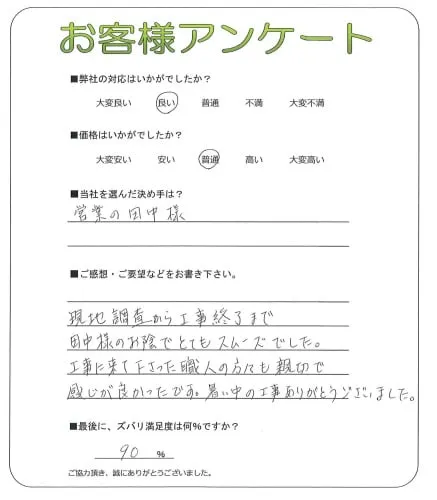 お客様アンケート
■弊社の対応はいかがでしたか?
大変良い 良い 普通 不満 大変不満
■価格はいかがでしたか?
大変安い 安い 普通 高い 大変高い
■当社を選んだ決め手は?
営業の田中様
■ご感想・ご要望などをお書き下さい。
現地調査から工事終了まで
田中様のお陰でとてもスムーズでした。
工事に来て下さった職人の方々も親切で
感じが良かったです。暑い中の工事ありがとうございました。
■最後に、ズバリ満足度は何%ですか?
90 %
ご協力頂き、誠にありがとうございました。